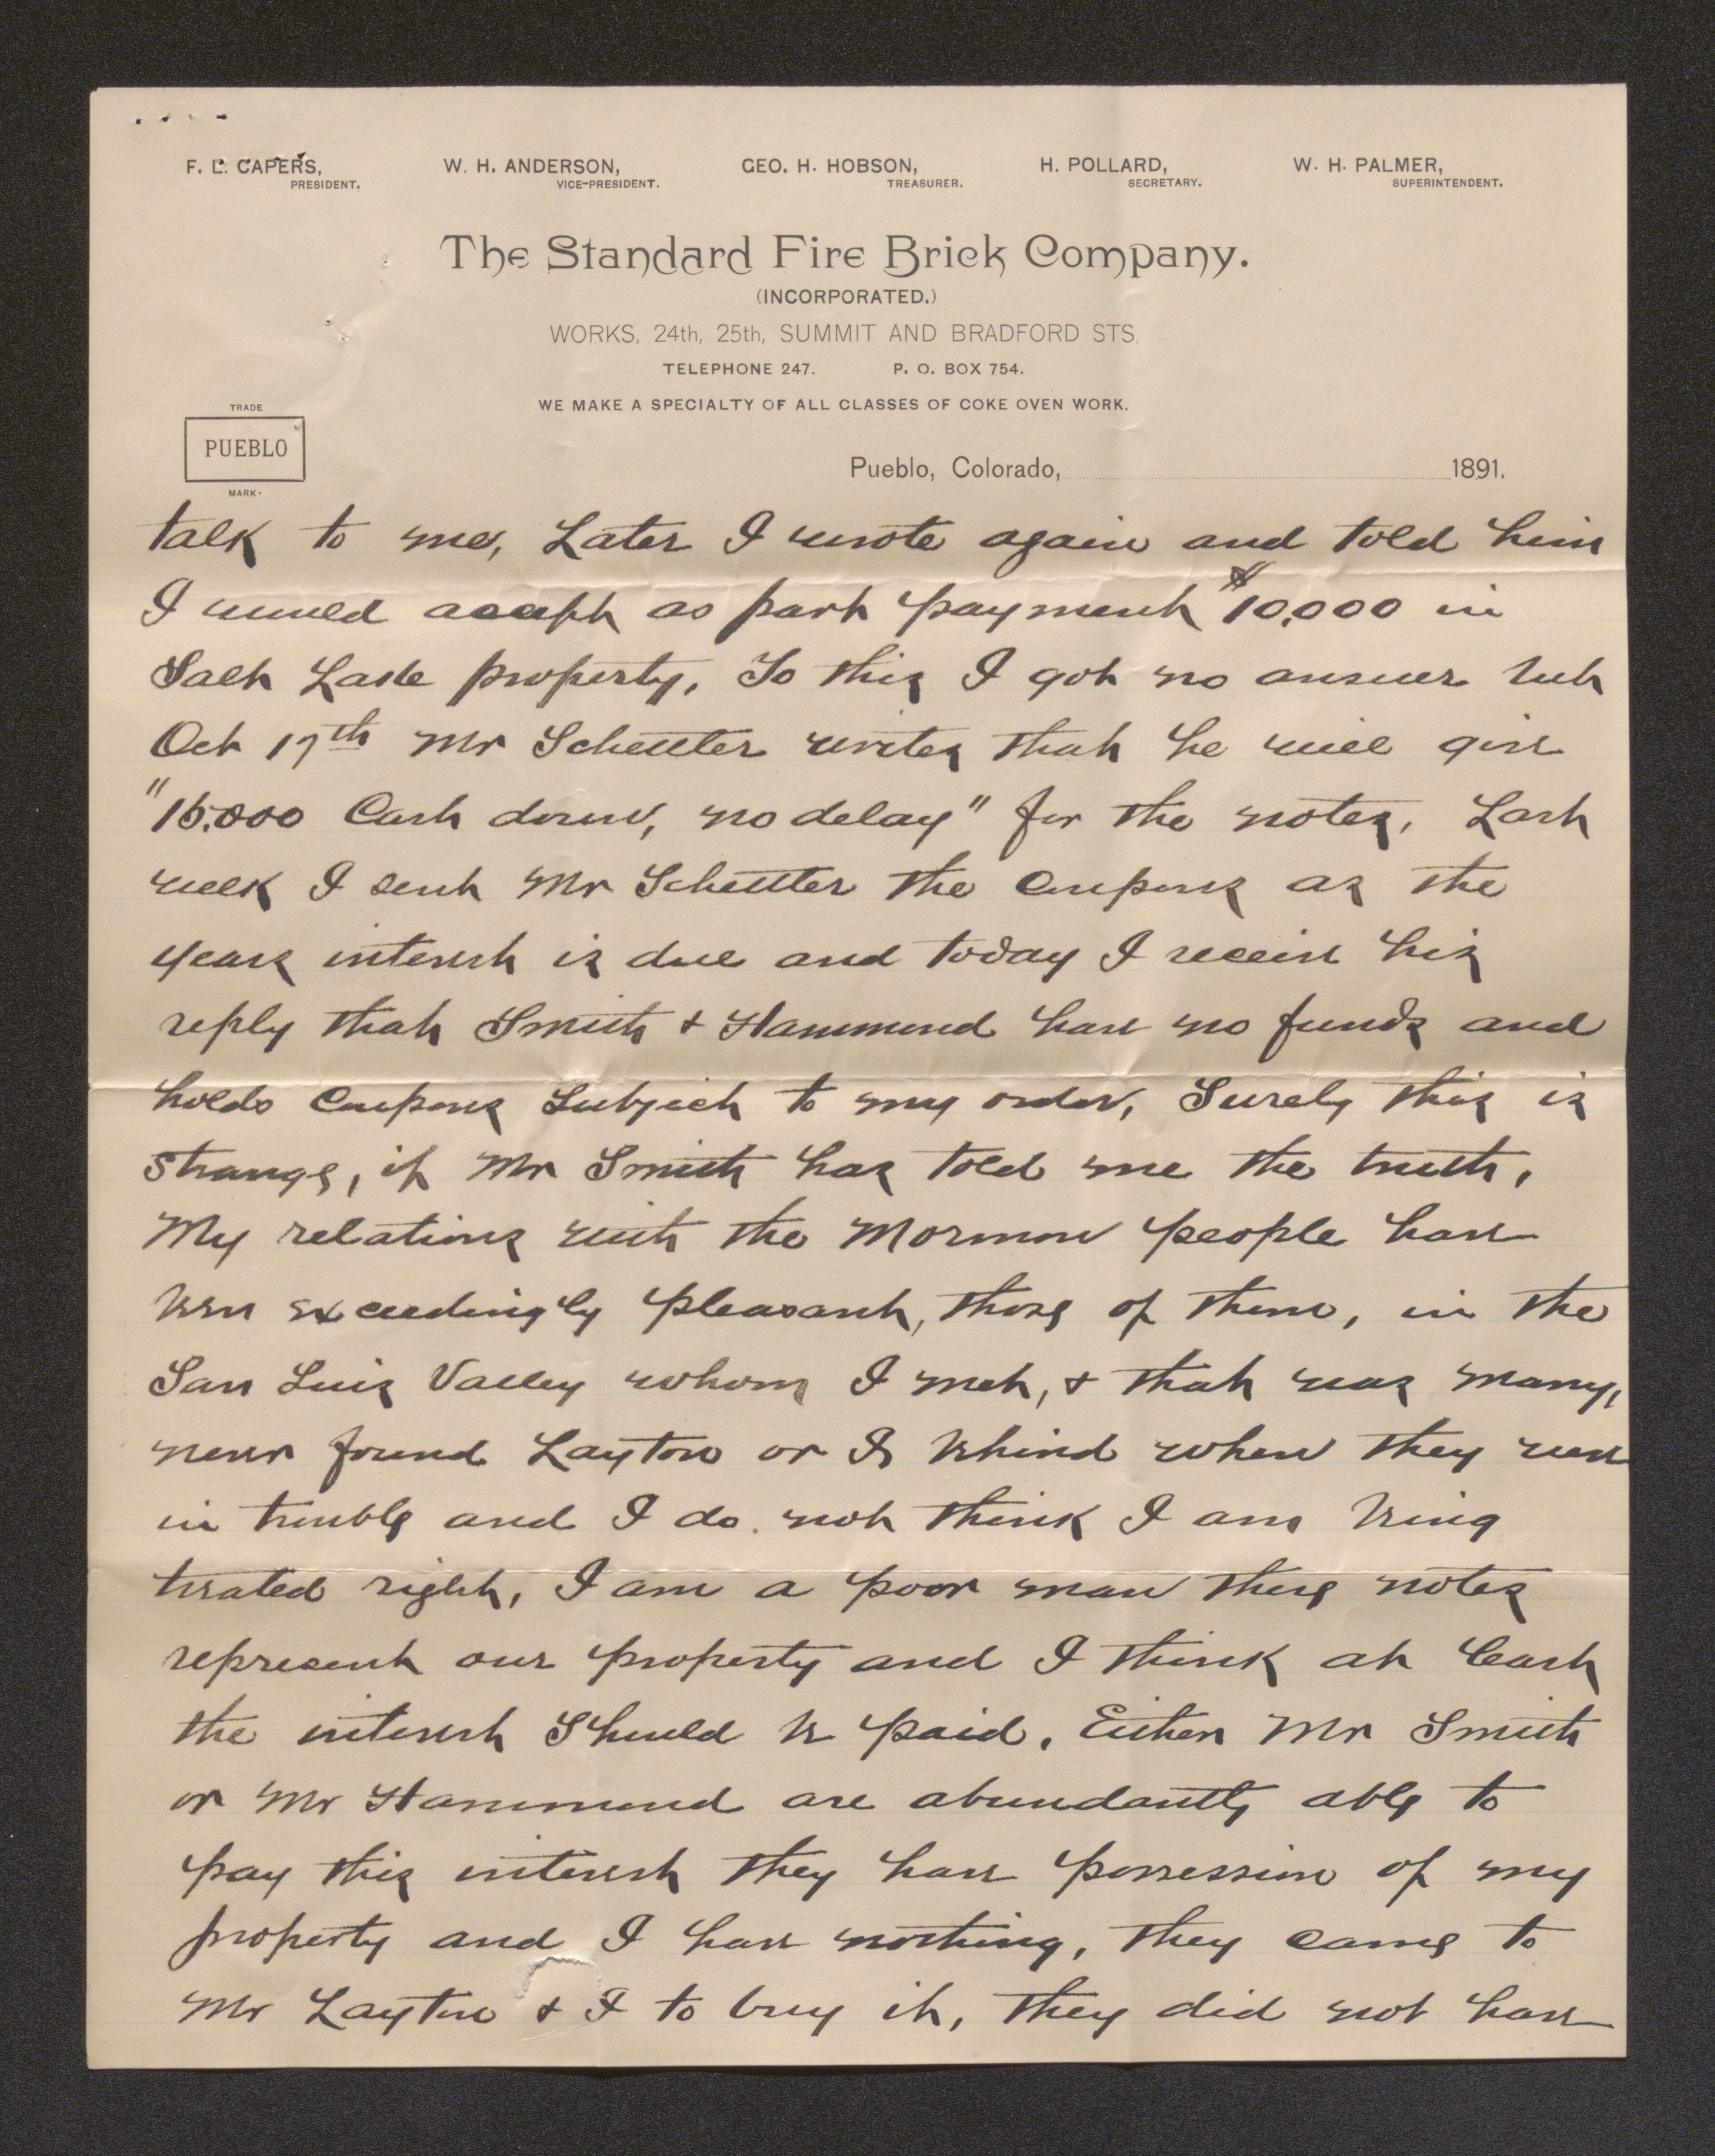 F. L. CAPERS, PRESIDENT. W. H. ANDERSON, VICE-PRESIDENT. GEO. H. HOBSON, TREASURER. H. POLLARD, SECRETARY. W. H. PALMER, SUPERINTENDENT.
The Standard Fire Brick Company.
(INCORPORATED.)
WORKS, 24th, 25th, SUMMIT AND BRADFORD STS.
TELEPHONE 247. P. O. BOX 754.
WE MAKE A SPECIALTY OF ALL CLASSES OF COKE OVEN WORK.
TRADE
PUEBLO
MARK.
Pueblo, Colorado, 1891.
talk to me, Later I wrote again and told him
I would accept as part payment $10,000 in
Salt Lake property, To this I got no answer but
Oct 17th Mr Schettler writes that he will give
"15.000 Cash down, no delay" for the notes, Last
week I sent Mr Schettler the Coupons as the
years interest is due and today I receive his
reply that Smith & Hammond have no funds and
holds Coupons Subject to my order, Surely this is
Strange, if Mr Smith has told me the truth,
My relations with the Mormon people have
been exceedingly pleasant, those of them, in the
San Luis Valley whom I met, & that was many,
never found Layton or I behind when they were
in trouble and I do not think I am being
treated right, I am a poor man these notes
represent our property and I think at least
the interest Should be paid. Either Mr Smith
or Mr Hammond are abundantly able to
pay this interest they have possession of my
property and I have nothing, they came to
Mr Layton & I to buy it, they did not have